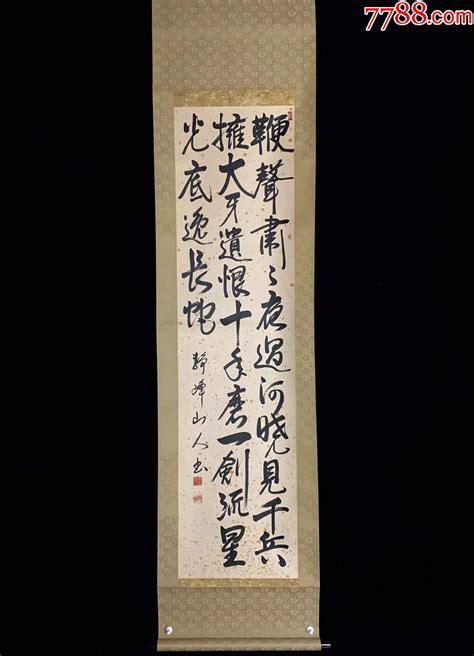 7788.com
鞭聲肅〻夜過河曉見千兵
擁大牙遺恨十年磨一劍流星
光底逸長蛇
靜峰山人書